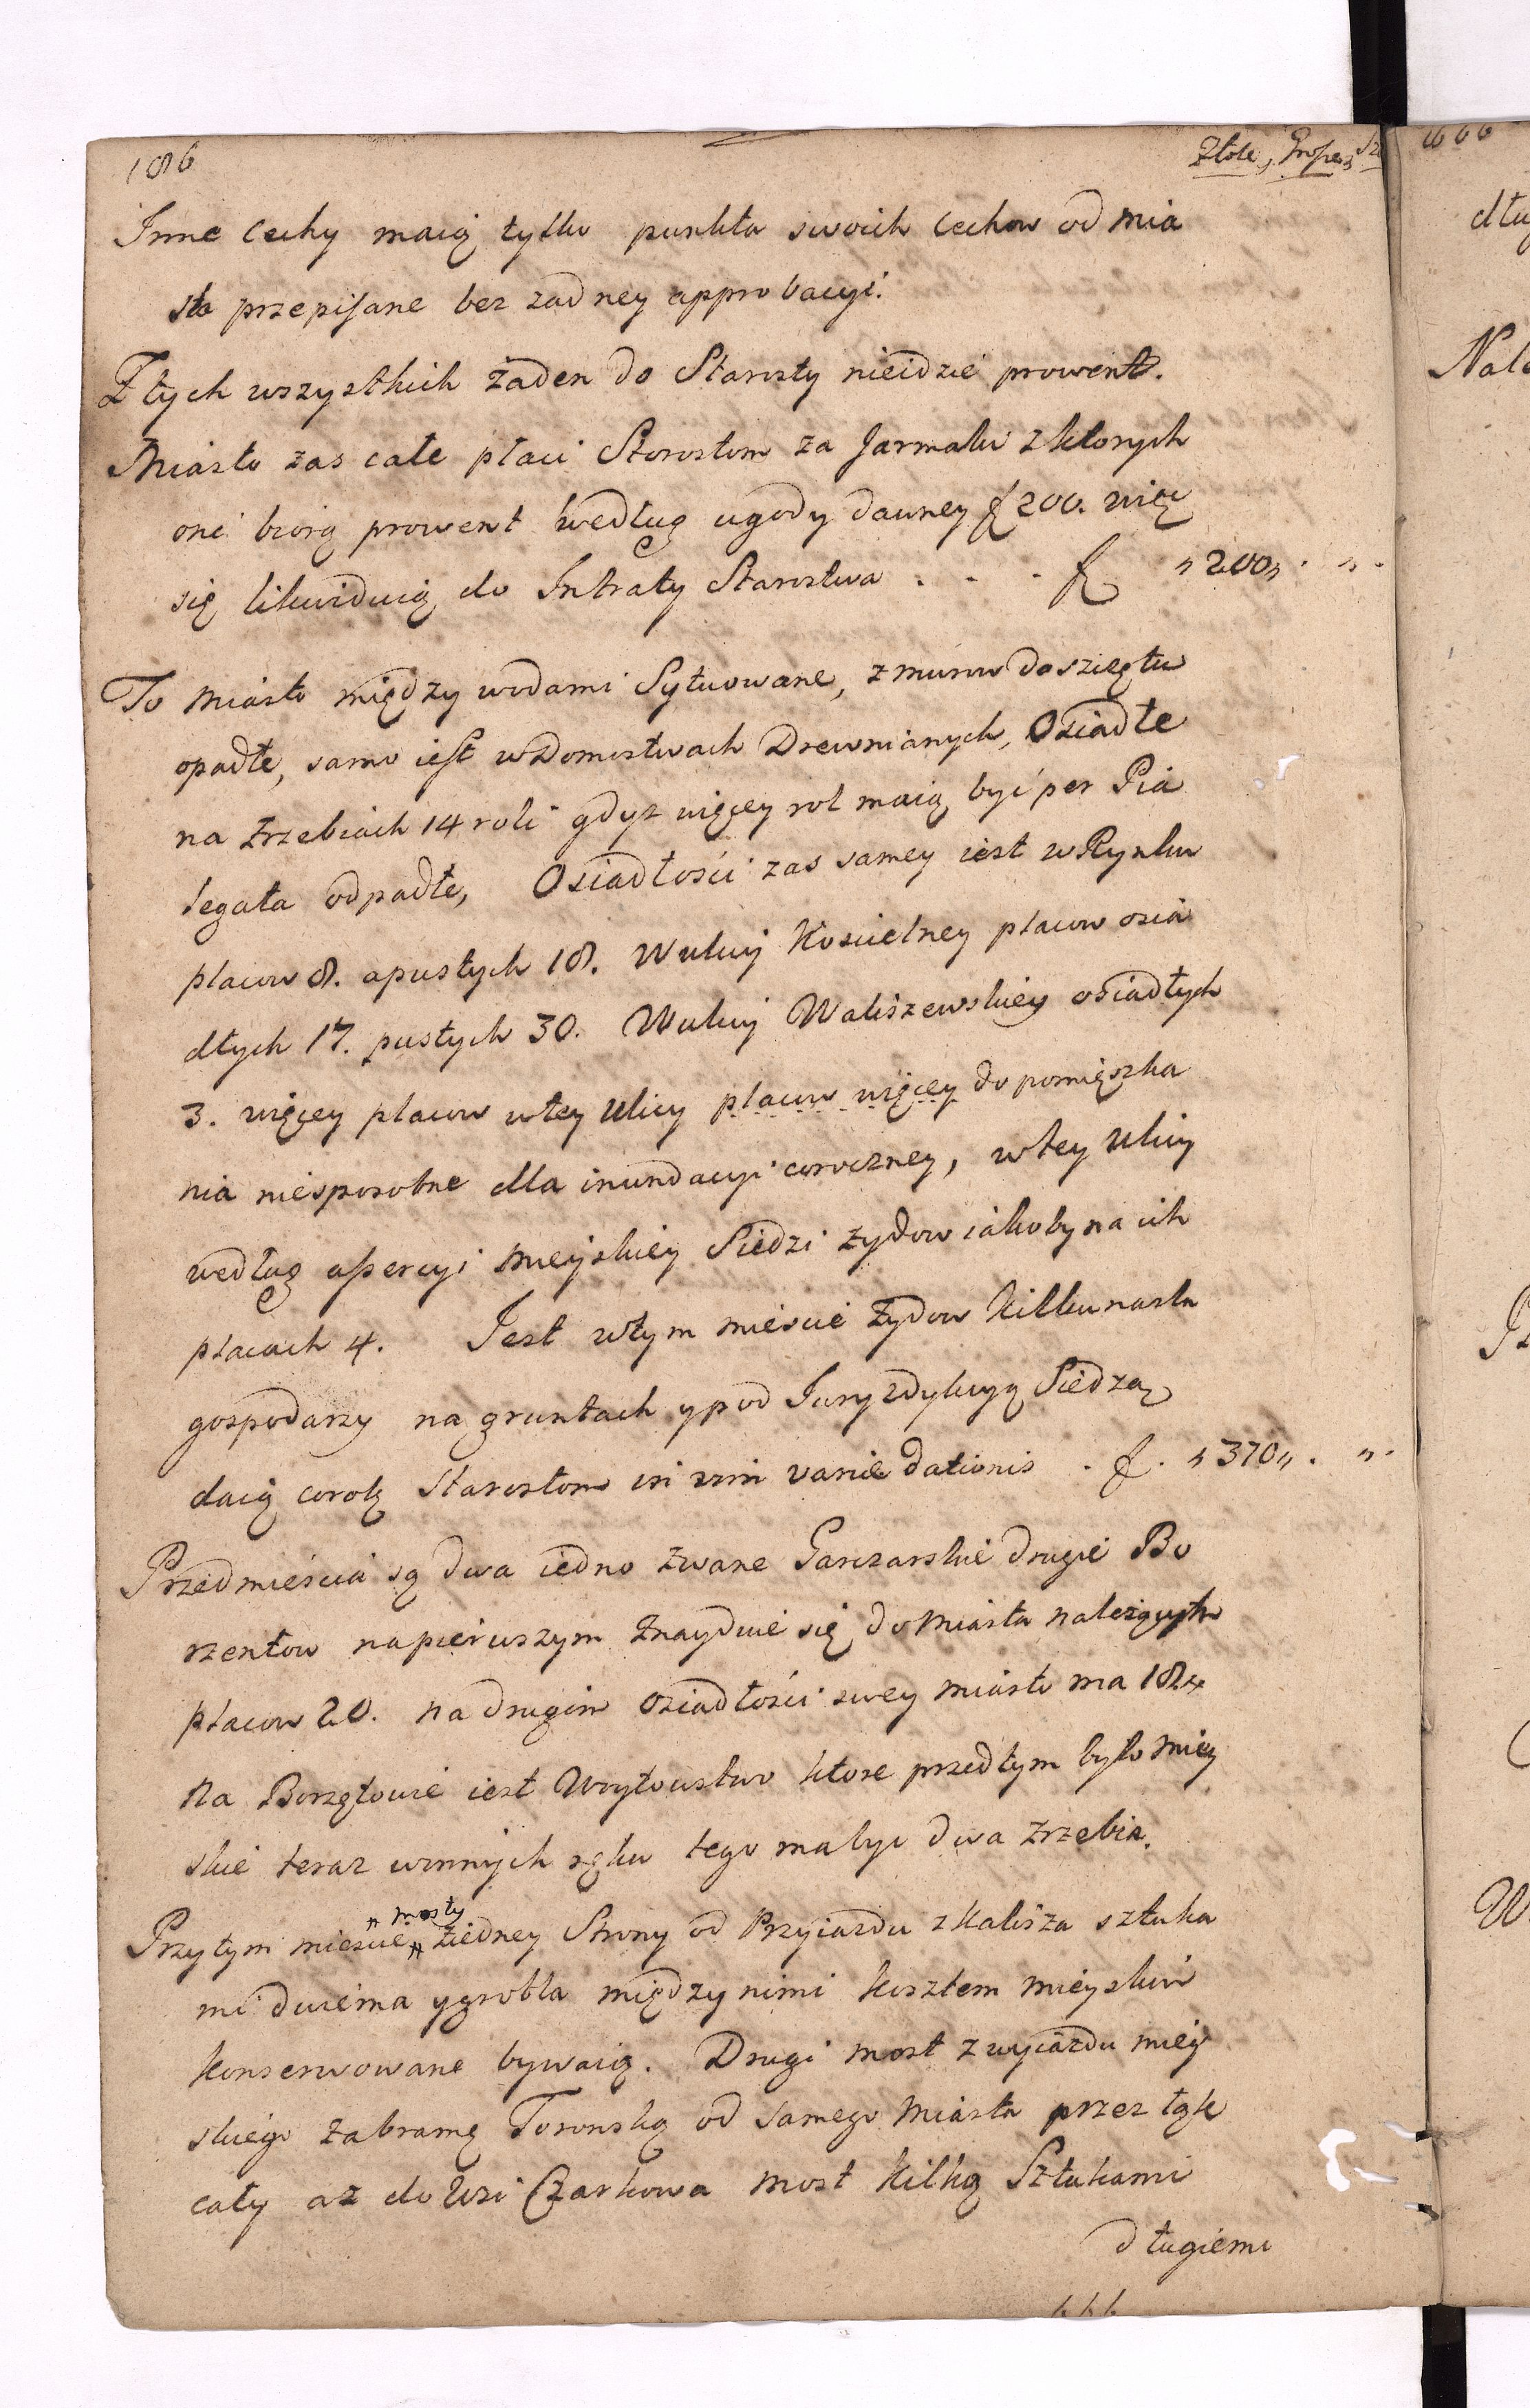 186
Złote, Grosze, Sze
Inne Cechy maią tylko punkta swoich Cechow od mia
sta przepisane bez zadney approbacyi.
Z tych wszystkich żaden do Starosty nieidzie prowent.
Miasto zas całe płaci Starostom za Jarmaki z ktorych
oni biorą prowent według ugody dawney f 200. więc
się likwiduią do Intraty Starostwa . . . f „ 200„ . „ .
To miasto między wodami Sytuowane, z murow doszczętu
opadłe, samo iest w Domostwach Drewnianych, Osiadłe
na Zrzebiach 14 roli gdyz więcey rol maią być per Pia
legata odpadłe, Osiadłości zas samey iest w Rynku
placow 8. apustych 18. W ulicy Koscielney placow osia
dłych 17. pustych 30. W ulicy Waliszewskiey osiadłych
3. więcey placow w tey Ulicy placow więcey do pomięszka
nia niesposobne dla inundacyi coroczney, w tey Ulicy
według assercyi Mieyskiey Siedzi zydow iakoby na ich
placach 4. Jest w tym miescie Zydow Kilkunastu
gospodarzy na gruntach y pod Juryzdykcyą Siedzą
daią corok Starostom in vim variæ dationis . f . „ 370„ . „ .
Przedmieścia są dwa iedno zwane Garczarskie drugie Bo
rzentow na pierwszym Znayduie się do Miasta należących
placow 20. na drugim osiadłości swey miasto ma 18 24
Na Borzętowie iest Woytowstwo ktore przedtym było Miey
skie teraz w innych ręku tego ma być dwa Zrzebia.
„ mosty
Przytym miescie „ z iedney Strony od Przyiazdu z Kalisza sztuka
mi dwiema y grobla między nimi kosztem mieyskim
konserwowane bywaią. Drugi most z wyiazdu miey
skiego za bramą Torońską od samego Miasta przez łąk
cały az do Wsi Czarkowa most kilką Sztukami
długiemi
666
dłu
Nal
W